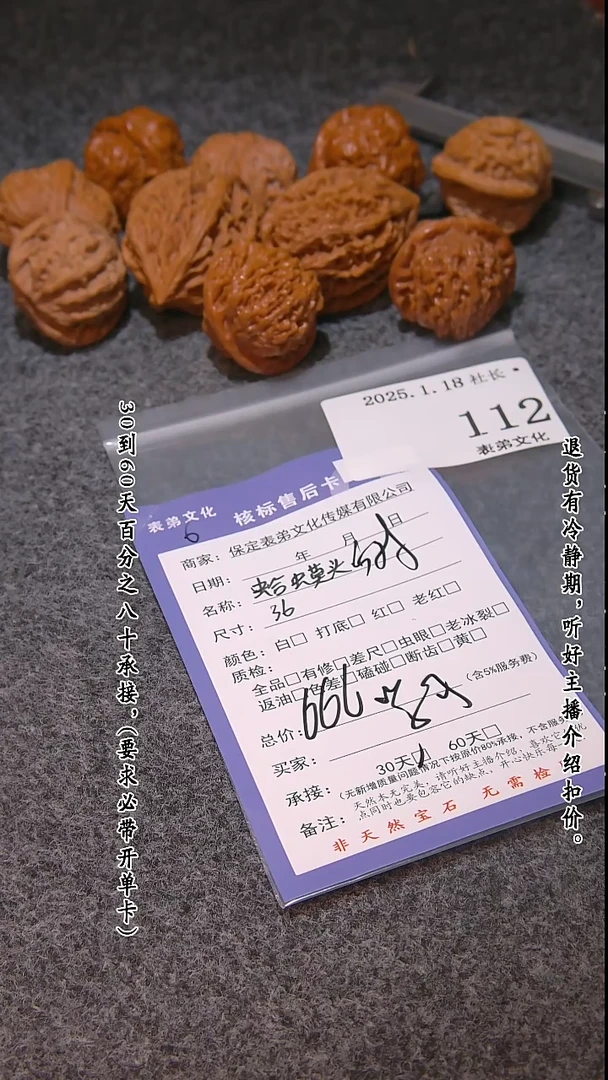 30到60天百分之八十承接,(要求必带开单卡)
退货有冷静期,听好主播介绍扣价。
2025.1.18 社长
112
表弟文化
表弟文化 核标售后卡
6
商家: 保定表弟文化传媒有限公司
日期: 年 月 日
名称: 蛤蟆草头
尺寸: 36
颜色: 白□ 打底□ 红□ 老红□
质检:
全品□有修□差尺□虫眼□老冰裂□
返油□色差□磕碰□断齿□黄□
总价: 666 (含5%服务费)
买家:
承接: 30天□ 60天□
(无新增质量问题情况下按原价80%承接,不含服务
备注: 天然本无完美,请听好主播介绍,喜欢它
点同时也要包容它的缺点,开心快乐每
非天然宝石 无需检